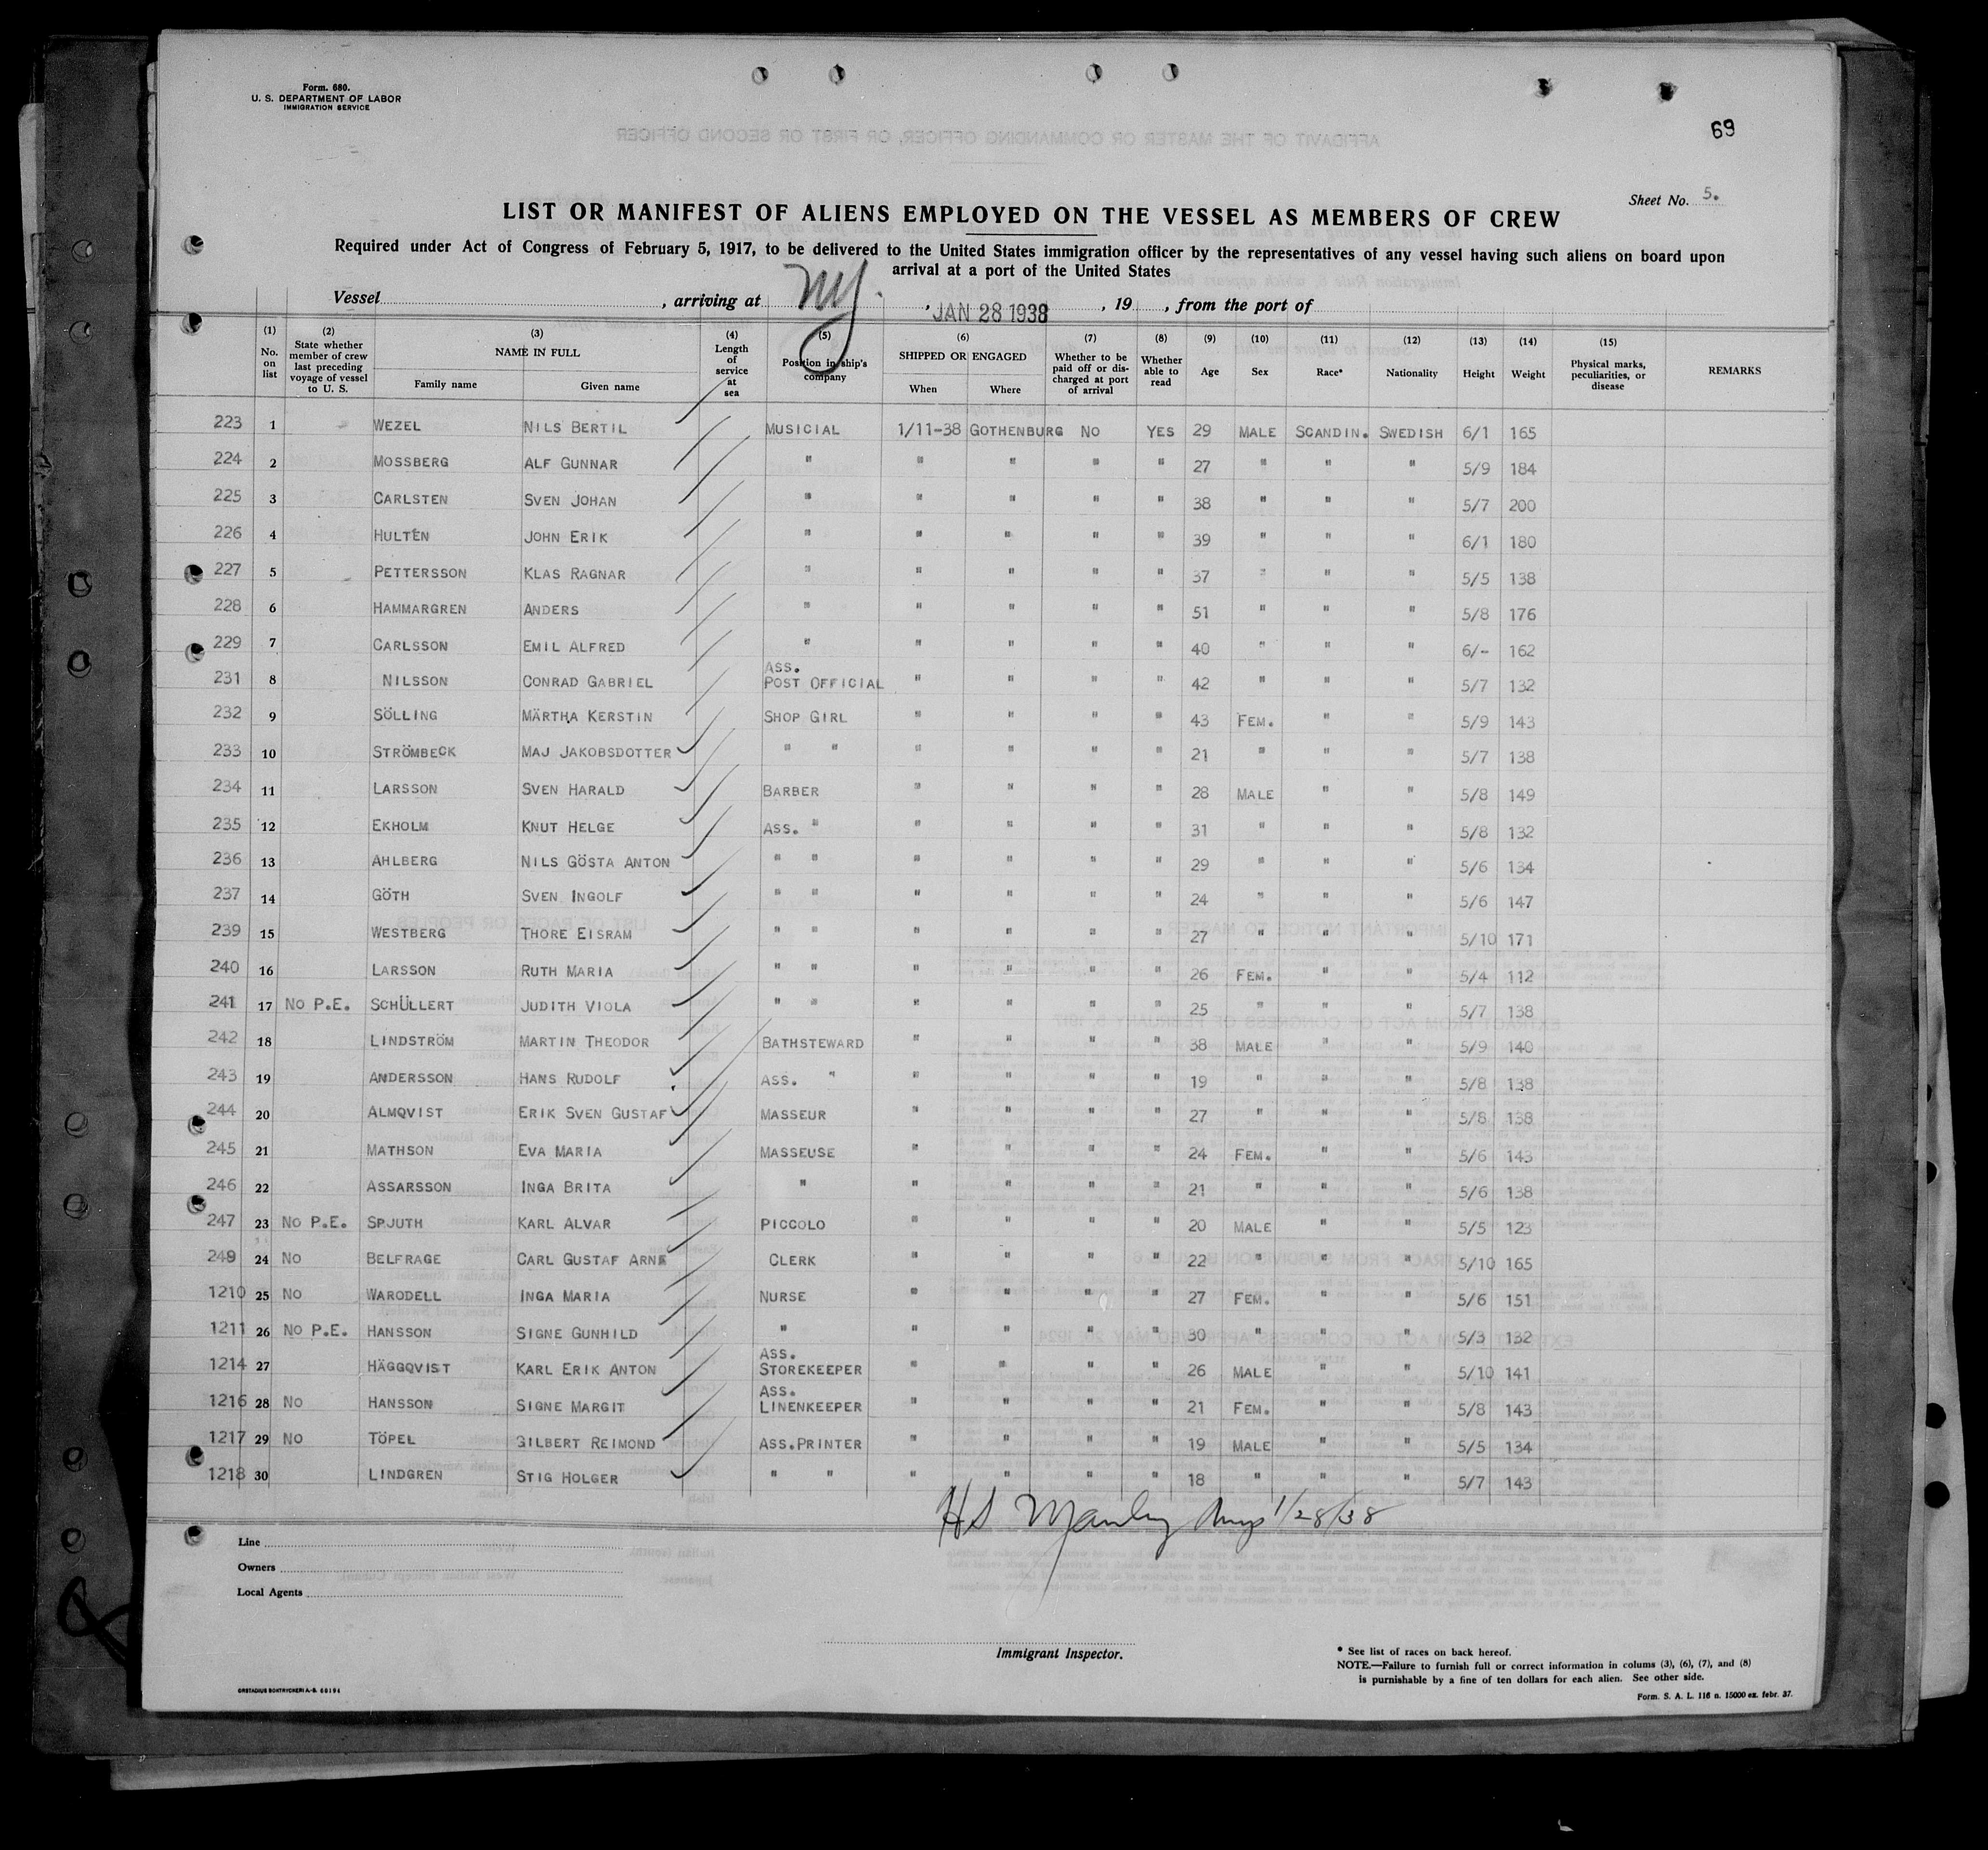 Form. 680.
U. S. DEPARTMENT OF LABOR
IMMIGRATION SERVICE
69
Sheet No. 5.
LIST OR MANIFEST OF ALIENS EMPLOYED ON THE VESSEL AS MEMBERS OF CREW
Required under Act of Congress of February 5, 1917, to be delivered to the United States immigration officer by the representatives of any vessel having such aliens on board upon
arrival at a port of the United States
Vessel , arriving at NY. , JAN 28 1938 , 19 , from the port of
(1) No. on list (2) State whether member of crew last preceding voyage of vessel to U. S. (3) NAME IN FULL Family name Given name (4) Length of service at sea (5) Position in ship's company (6) SHIPPED OR ENGAGED When Where (7) Whether to be paid off or discharged at port of arrival (8) Whether able to read (9) Age (10) Sex (11) Race* (12) Nationality (13) Height (14) Weight (15) Physical marks, peculiarities, or disease REMARKS
223 1 WEZEL NILS BERTIL MUSICIAL 1/11-38 GOTHENBURG NO YES 29 MALE SCANDIN. SWEDISH 6/1 165
224 2 MOSSBERG ALF GUNNAR " " " " " 27 " " " 5/9 184
225 3 CARLSTEN SVEN JOHAN " " " " " 38 " " " 5/7 200
226 4 HULTÉN JOHN ERIK " " " " " 39 " " " 6/1 180
227 5 PETTERSSON KLAS RAGNAR " " " " " 37 " " " 5/5 138
228 6 HAMMARGREN ANDERS " " " " " 51 " " " 5/8 176
229 7 CARLSSON EMIL ALFRED " " " " " 40 " " " 6/- 162
231 8 NILSSON CONRAD GABRIEL ASS. POST OFFICIAL " " " " 42 " " " 5/7 132
232 9 SÖLLING MÄRTHA KERSTIN SHOP GIRL " " " " 43 FEM. " " 5/9 143
233 10 STRÖMBECK MAJ JAKOBSDOTTER " " " " " " 21 " " " 5/7 138
234 11 LARSSON SVEN HARALD BARBER " " " " 28 MALE " " 5/8 149
235 12 EKHOLM KNUT HELGE ASS. " " " " " 31 " " " 5/8 132
236 13 AHLBERG NILS GÖSTA ANTON " " " " " " 29 " " " 5/6 134
237 14 GÖTH SVEN INGOLF " " " " " " 24 " " " 5/6 147
239 15 WESTBERG THORE EISRAM " " " " " " 27 " " " 5/10 171
240 16 LARSSON RUTH MARIA " " " " " " 26 FEM. " " 5/4 112
241 17 NO P.E. SCHÜLLERT JUDITH VIOLA " " " " " " 25 " " " 5/7 138
242 18 LINDSTRÖM MARTIN THEODOR BATHSTEWARD " " " " 38 MALE " " 5/9 140
243 19 ANDERSSON HANS RUDOLF ASS. " " " " " 19 " " " 5/8 138
244 20 ALMQVIST ERIK SVEN GUSTAF MASSEUR " " " " 27 " " " 5/8 138
245 21 MATHSON EVA MARIA MASSEUSE " " " " 24 FEM. " " 5/6 143
246 22 ASSARSSON INGA BRITA " " " " " 21 " " " 5/6 138
247 23 NO P.E. SPJUTH KARL ALVAR PICCOLO " " " " 20 MALE " " 5/5 123
249 24 NO BELFRAGE CARL GUSTAF ARNE CLERK " " " " 22 " " " 5/10 165
1210 25 NO WARODELL INGA MARIA NURSE " " " " 27 FEM. " " 5/6 151
1211 26 NO P.E. HANSSON SIGNE GUNHILD " " " " " 30 " " " 5/3 132
1214 27 HÄGGQVIST KARL ERIK ANTON ASS. STOREKEEPER " " " " 26 MALE " " 5/10 141
1216 28 NO HANSSON SIGNE MARGIT ASS. LINENKEEPER " " " " 21 FEM. " " 5/8 143
1217 29 NO TÖPEL GILBERT REIMOND ASS.PRINTER " " " " 19 MALE " " 5/5 134
1218 30 LINDGREN STIG HOLGER " " " " " " 18 " " " 5/7 143
HS Manley 1/28/38
Line
Owners
Local Agents
Immigrant Inspector.
* See list of races on back hereof.
NOTE.—Failure to furnish full or correct information in colums (3), (6), (7), and (8)
is punishable by a fine of ten dollars for each alien. See other side.
Form. S. A. L. 116 n. 15000 ex. febr. 37.